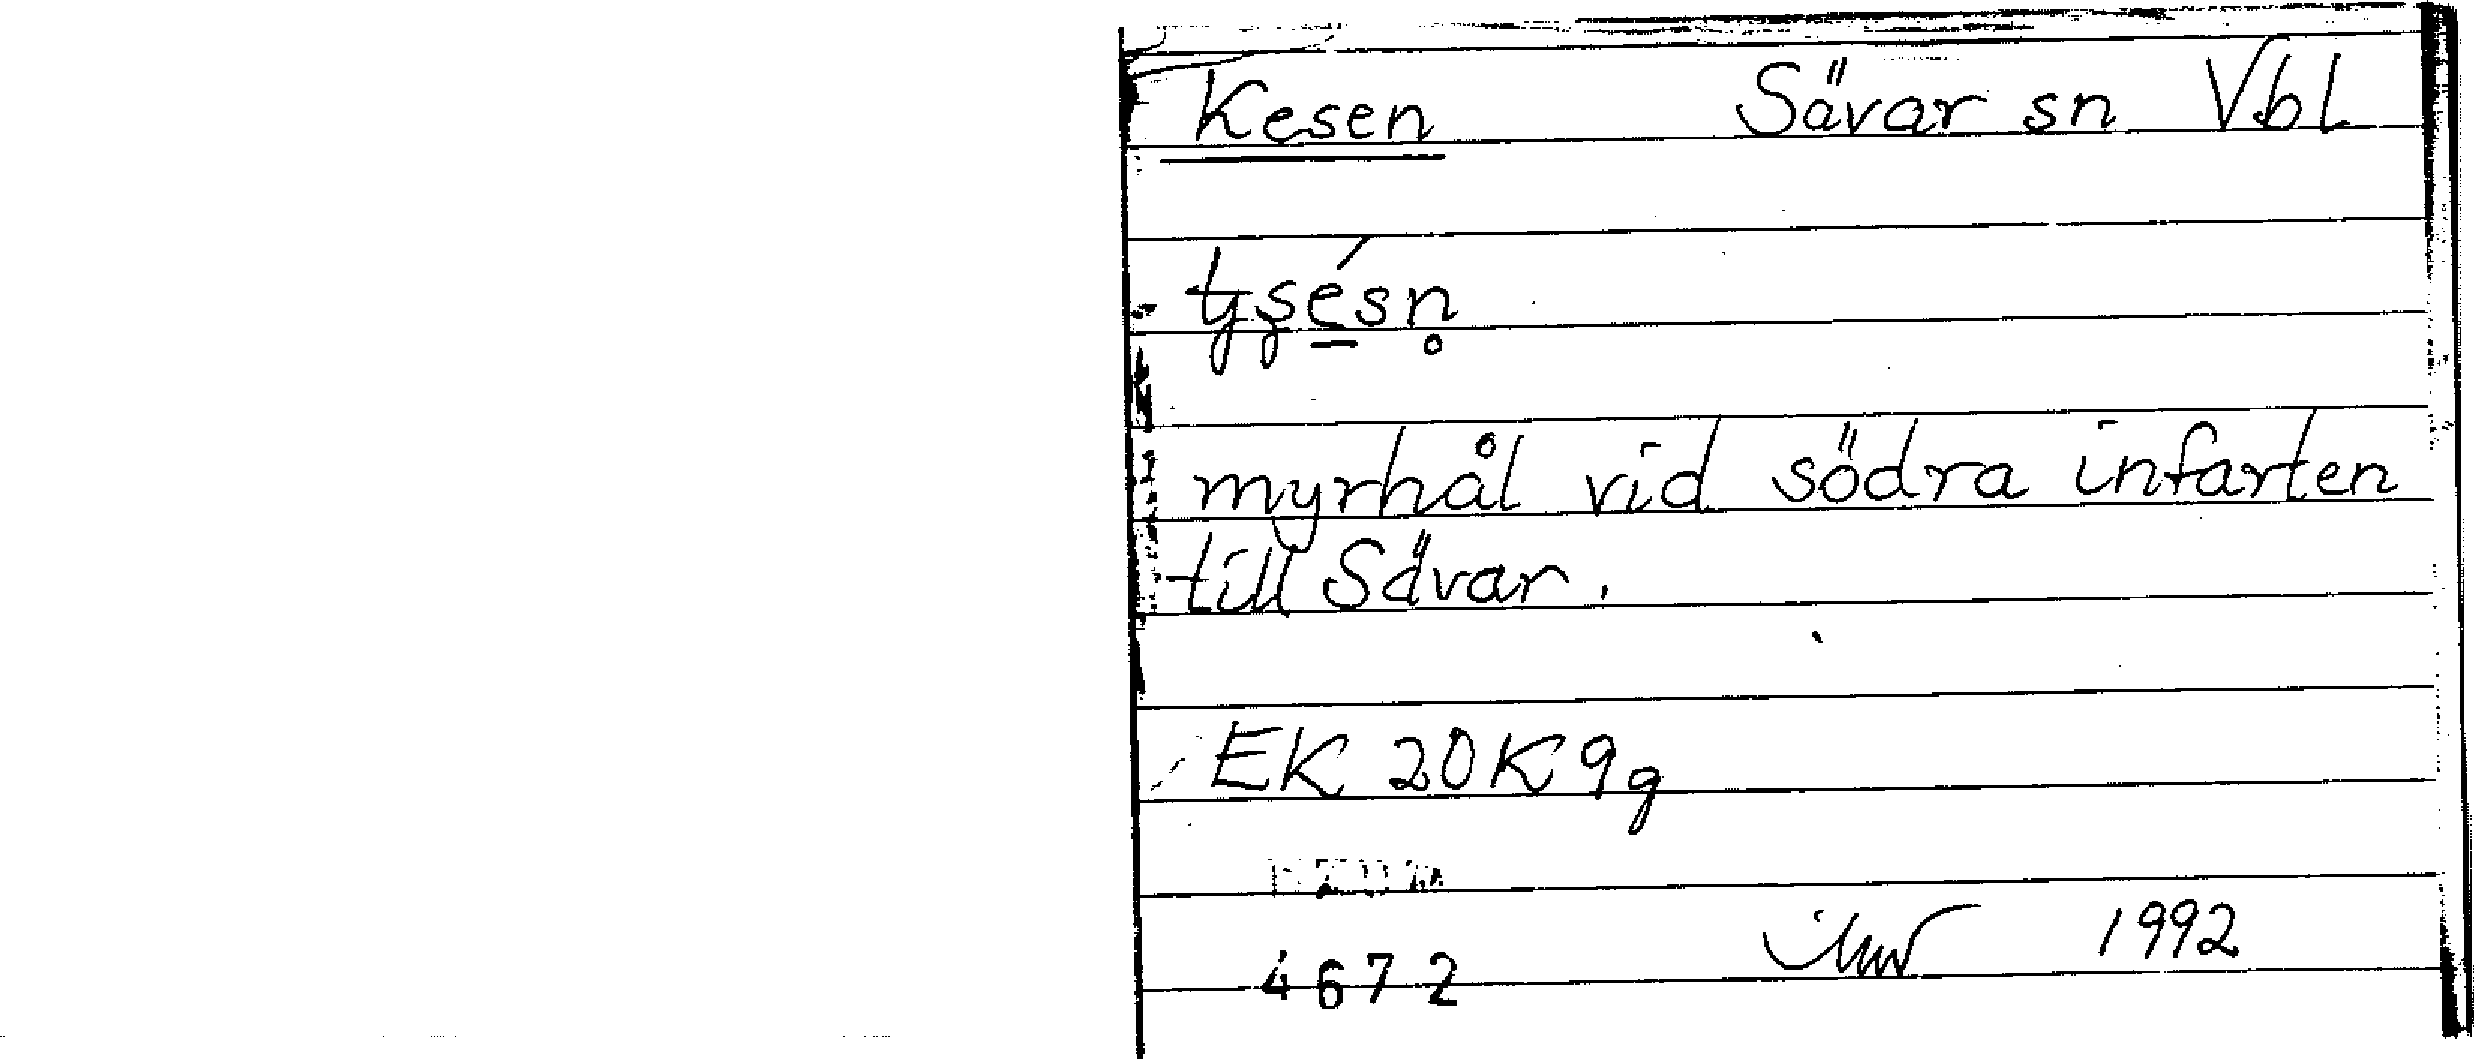 Kesen Sävar sn Vbl
myrhål vid södra infarten
till Sävar.
EK 20K 9g
4672 1992